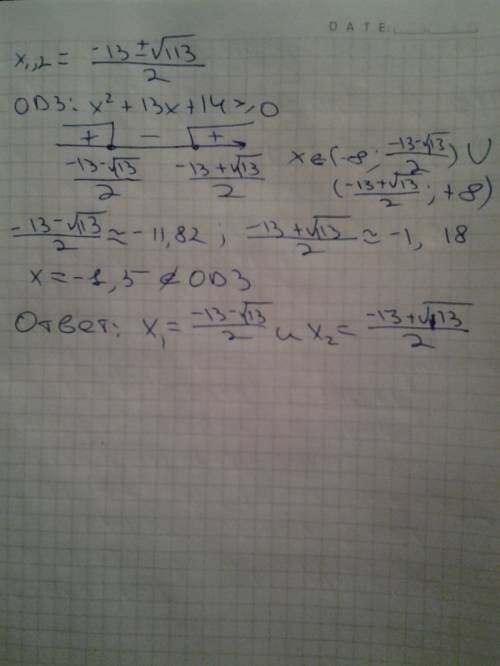 DATE:
x₁,₂ = (-13 ± √113)/2
ОДЗ: x² + 13x + 14 ≥ 0
+ − +
(-13-√13)/2 (-13+√13)/2 x ∈ (-∞; (-13-√13)/2) ∪
((-13+√13)/2; +∞)
(-13-√13)/2 ≈ -11,82; (-13+√113)/2 ≈ -1, 18
x = -1,5 ∉ ОДЗ
Ответ: x₁ = (-13-√13)/2 и x₂ = (-13+√113)/2